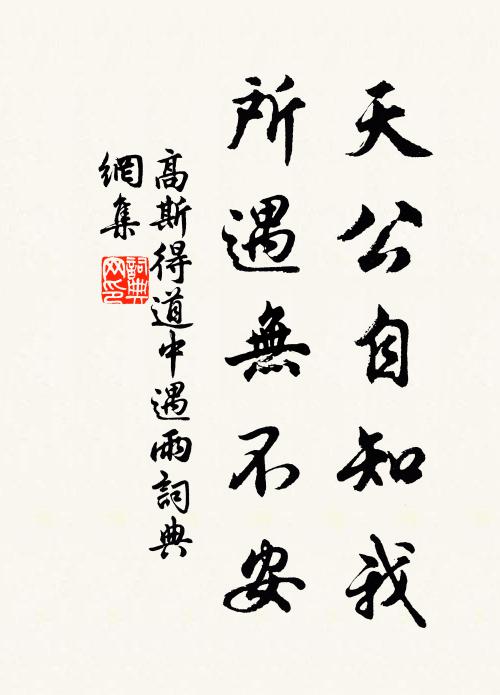 天公自知我
所遇無不安
高斯得道中遇雨詞典
網集
詞典
网印